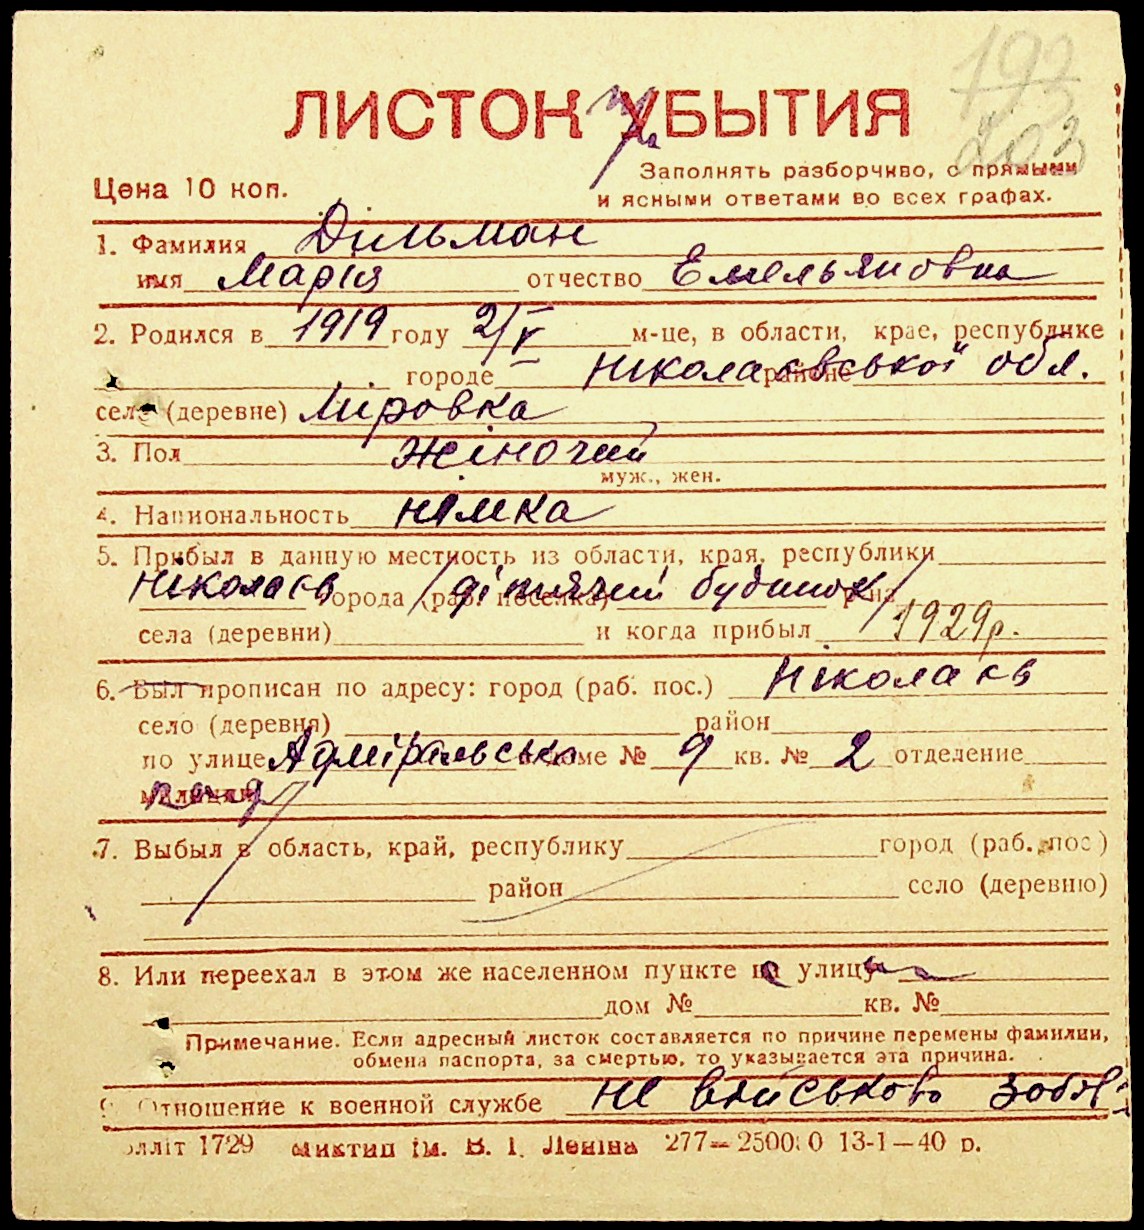 193
203
ЛИСТОК УБЫТИЯ
Цена 10 коп.
Заполнять разборчиво, с прямыми
и ясными ответами во всех графах.
1. Фамилия Дільман
имя Марія отчество Емельяновна
2. Родился в 1919 году 2/V м-це, в области, крае, республике
городе районе Ніколаєвської обл.
селе (деревне) Міровка
3. Пол жіночий
муж., жен.
4. Национальность німка
5. Прибыл в данную местность из области, края, республики
Ніколаєв города (раб. поселка) /дітячий будинок/ р-на
села (деревни) и когда прибыл 1929р.
6. Был прописан по адресу: город (раб. пос.) Ніколаєв
село (деревня) район
по улице Адміральська доме № 9 кв. № 2 отделение
милиции
7. Выбыл в область, край, республику город (раб. пос)
район село (деревню)
8. Или переехал в этом же населенном пункте на улицу
дом № кв. №
Примечание. Если адресный листок составляется по причине перемены фамилии,
обмена паспорта, за смертью, то указывается эта причина.
9. Отношение к военной службе не військово зобов
элліт 1729 Миктип ім. В. І. Леніна 277—25000 13-1—40 р.